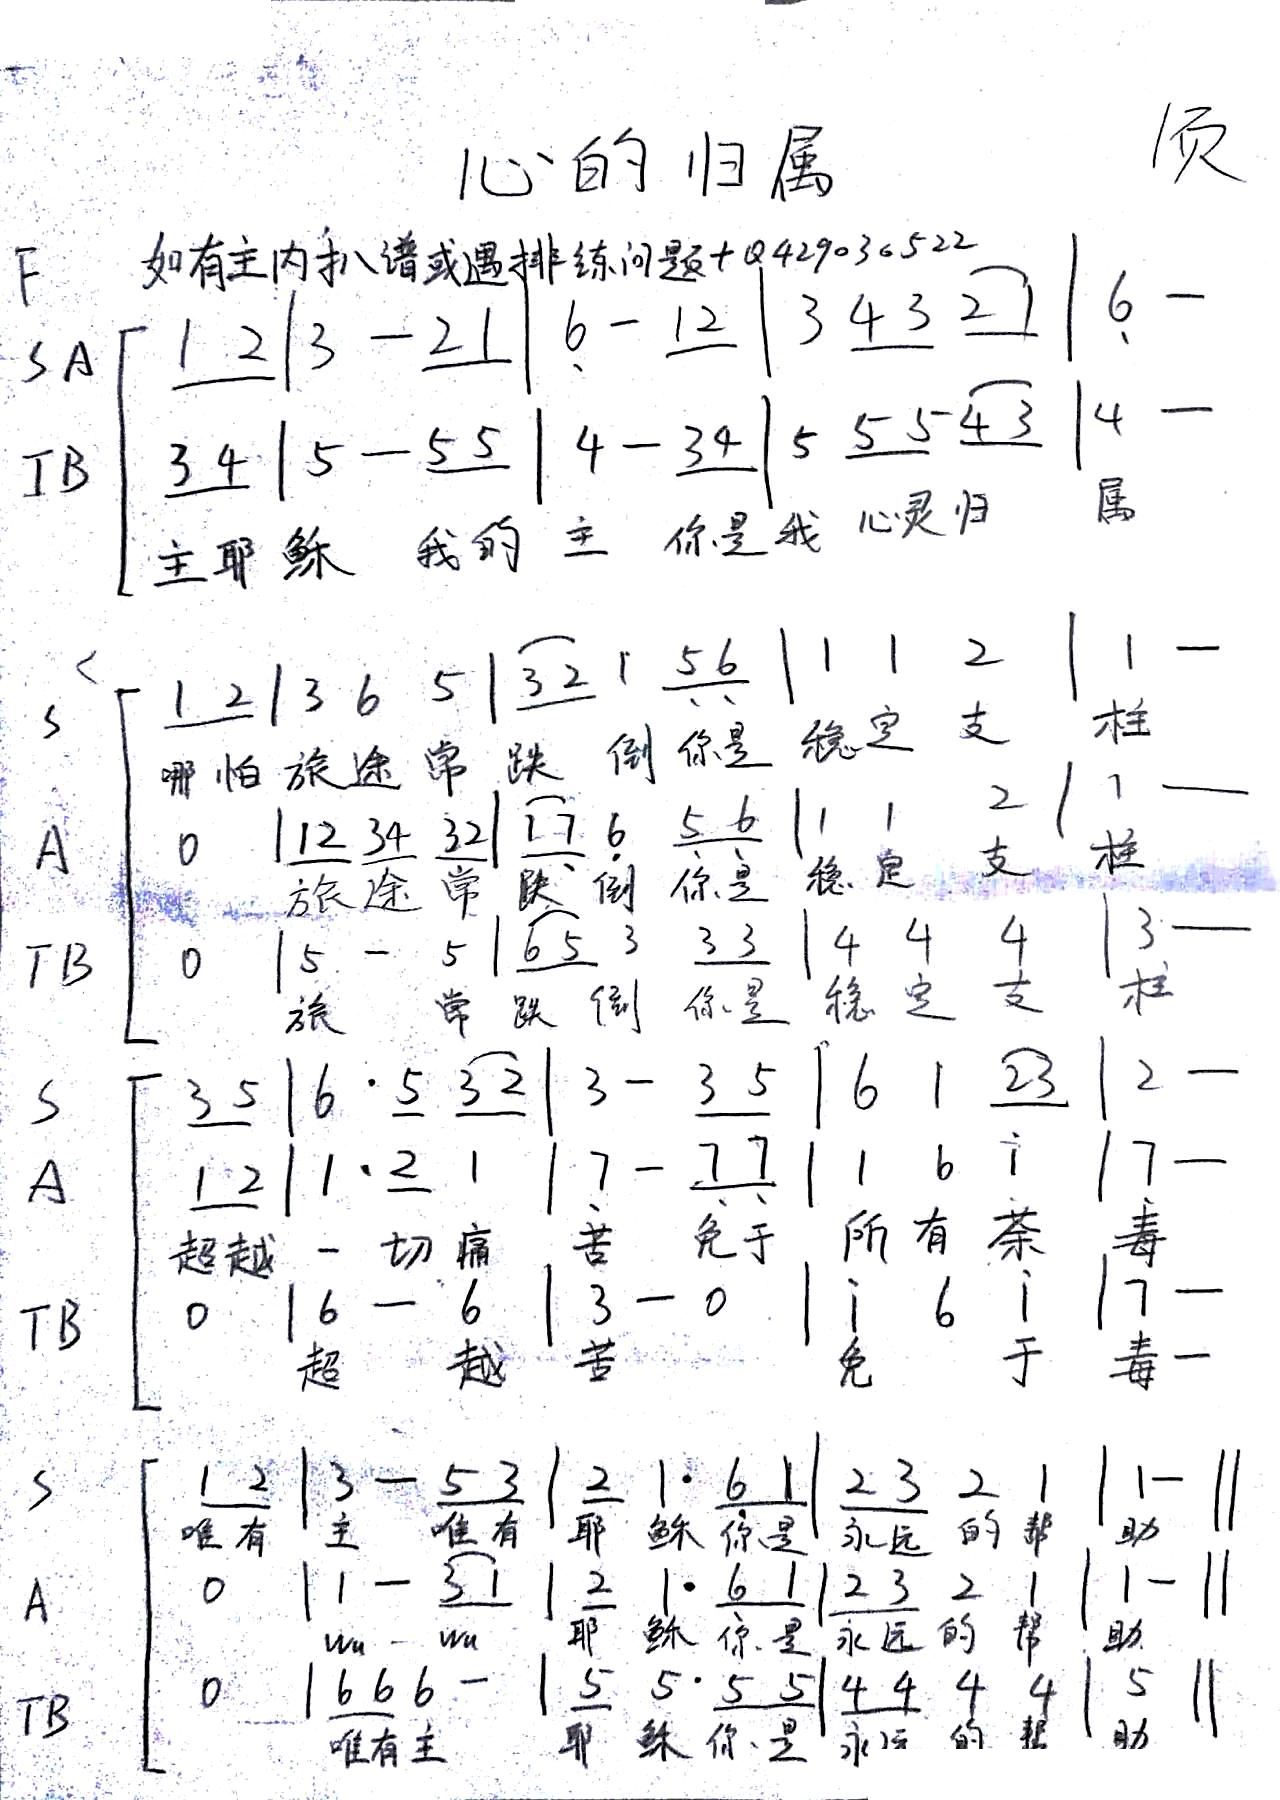 心的归属
1页
F 如有主内扒谱或遇排练问题+Q429036522
SA 1 2 | 3 — 2 1 | 6̣ — 1 2 | 3 4 3 2 1 | 6̣ —
TB 3 4 | 5 — 5 5 | 4 — 3 4 | 5 5 5 4 3 | 4 —
主耶稣 我的主 你是我 心灵归 属
S 1 2 | 3 6 5 | 3 2 1 5̣ 6̣ | 1 1 2 | 1 —
哪怕 旅途常 跌 倒 你是 稳定 支 柱
A 0 | 1 2 3 4 3 2 | 1 7̣ 6̣ 5̣ 6̣ | 1 1 2 | 1 —
旅途常 跌倒 你是 稳定 支 柱
TB 0 | 5 — 5 | 6 5 3 3 3 | 4 4 4 | 3 —
旅 常 跌 倒 你是 稳定 支 柱
S 3 5 | 6 · 5 3 2 | 3 — 3 5 | 6 1 2 3 | 2 —
A 1 2 | 1 · 2 1 | 7̣ — 7̣ 7̣ | 1 6 i | 7 —
超越 一切痛 苦 免于 所有荼 毒
TB 0 | 6 — 6 | 3 — 0 | i 6 i | 7 —
超 越 苦 免 于 毒 —
S 1 2 | 3 — 5 3 | 2 1 · 6̣ 1 | 2 3 2 1 | 1 — ‖
唯有 主 唯有 耶 稣 你是 永远 的帮 助
A 0 | 1 — 3 1 | 2 1 · 6 1 | 2 3 2 1 | 1 — ‖
wu - wu 耶 稣 你是 永远 的 帮 助
TB 0 | 6 6 6 — | 5 5 · 5 5 | 4 4 4 4 | 5 ‖
唯有主 耶 稣 你是 永远 的 帮 助